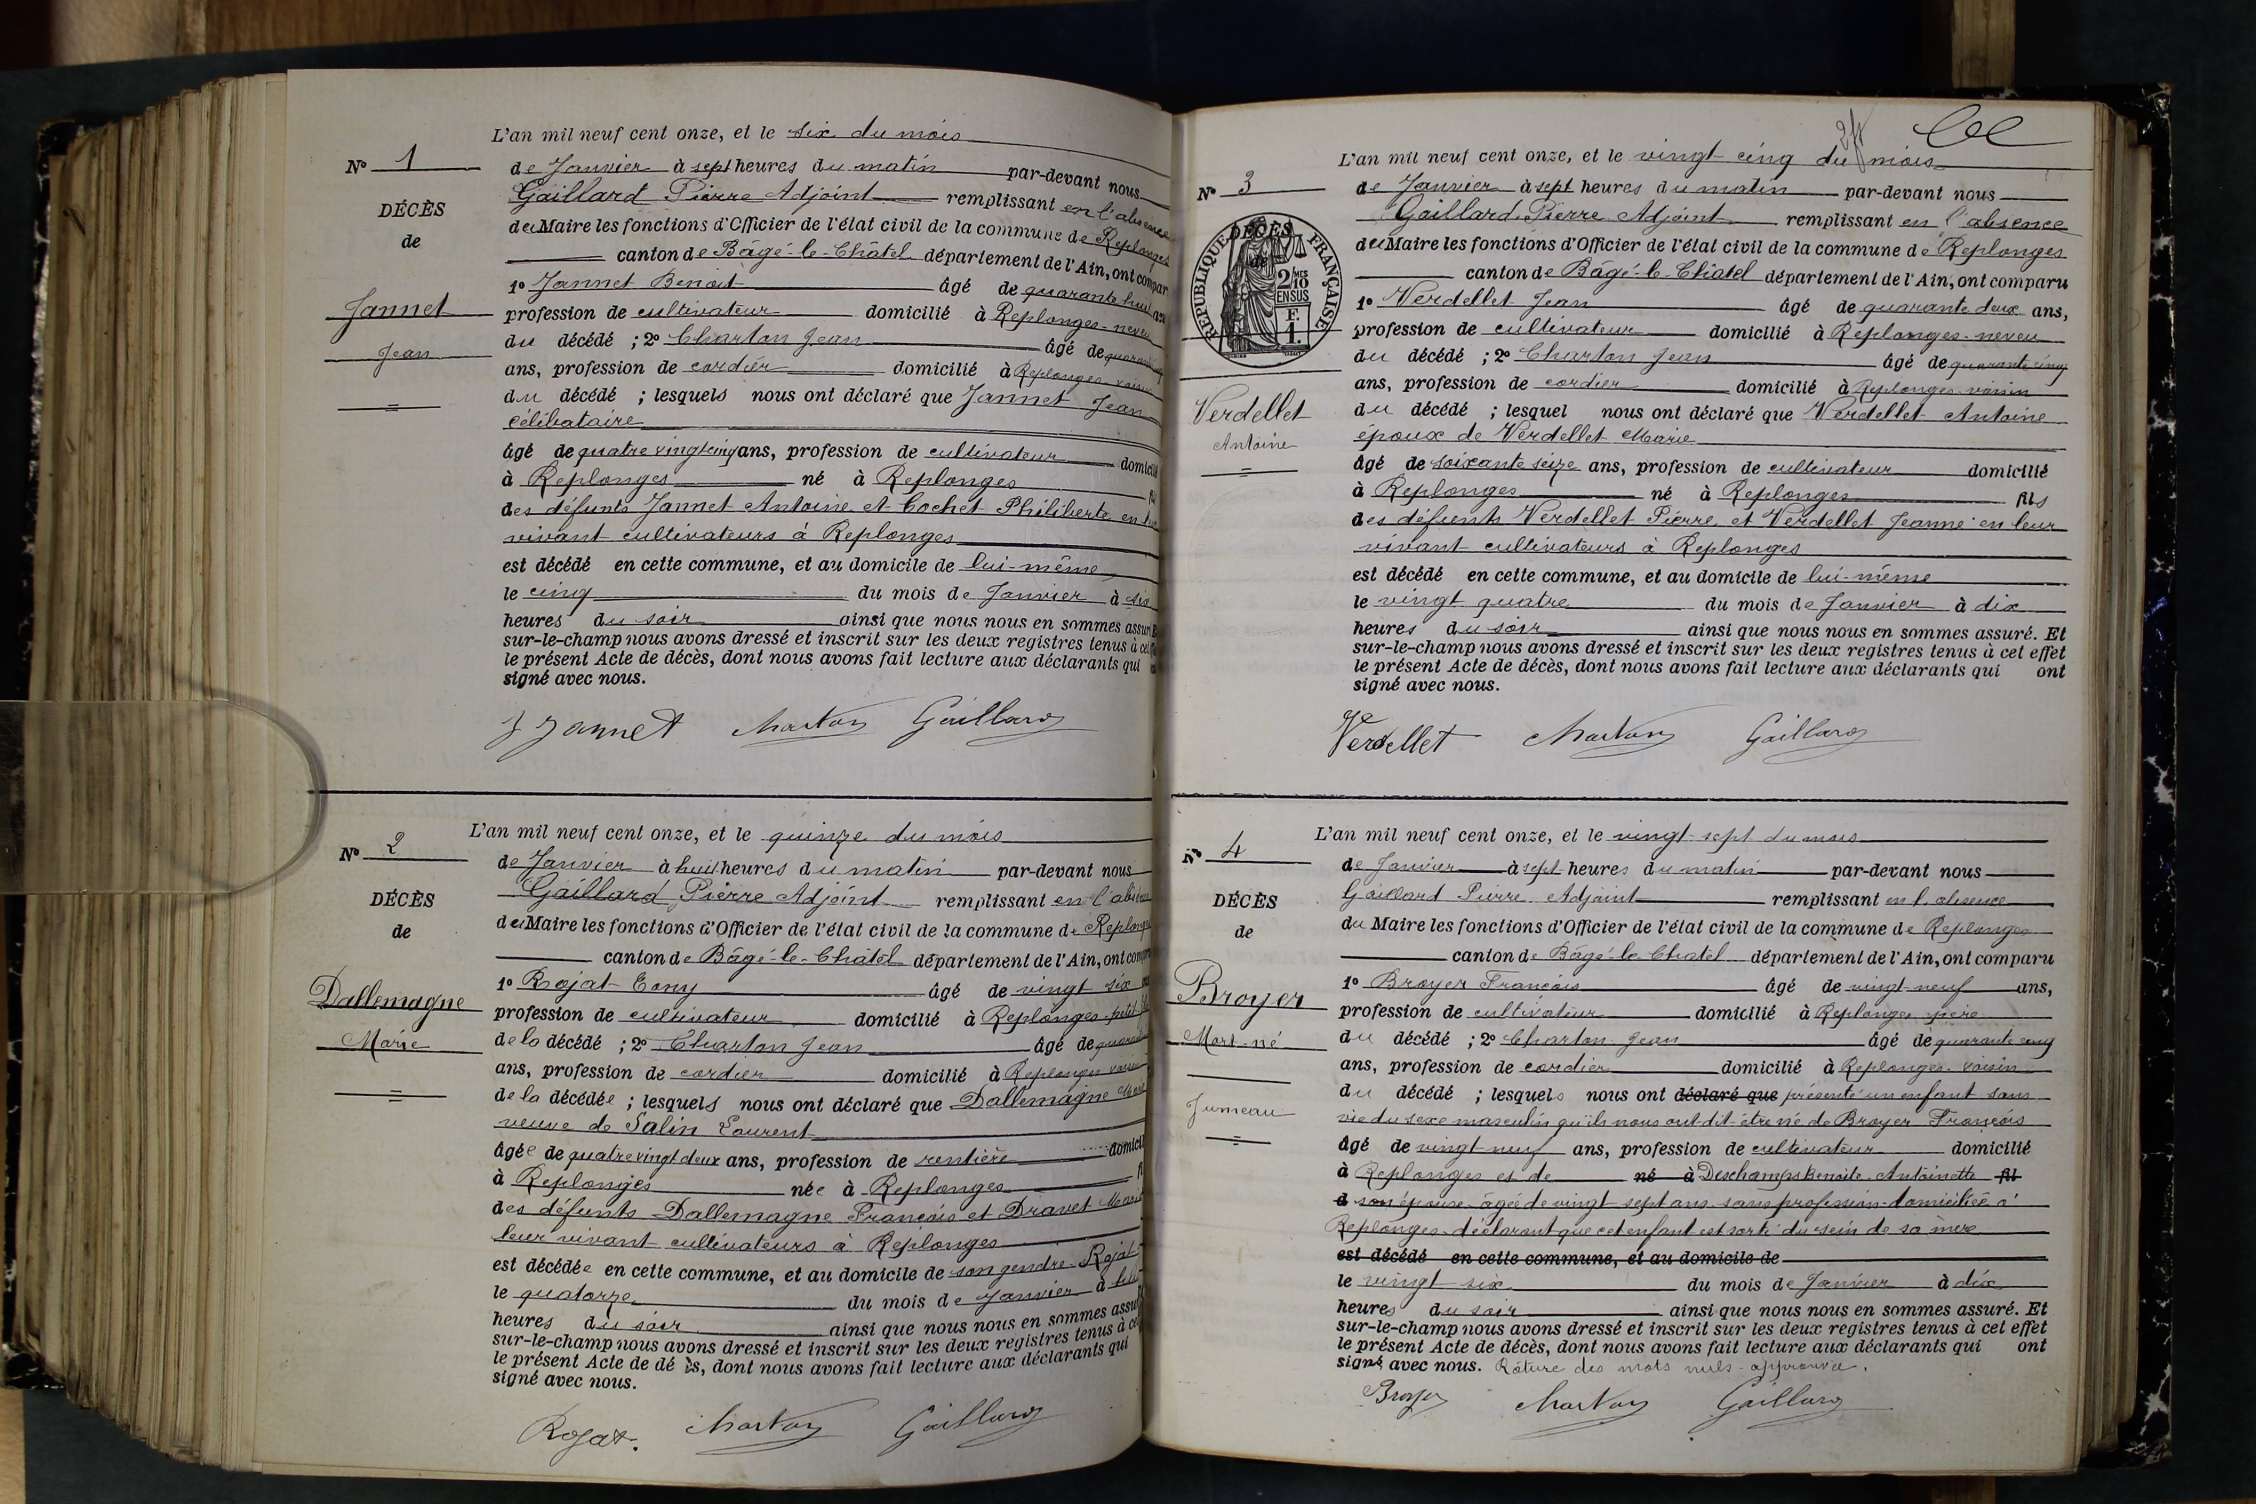 L'an mil neuf cent onze, et le six du mois
N° 1
de Janvier à sept heures du matin par-devant nous
Gaillard Pierre Adjoint remplissant en l'absence
DÉCÈS
du Maire les fonctions d'Officier de l'état civil de la commune de Replonges
de
canton de Bâgé-le-Châtel département de l'Ain, ont compar
1° Jannet Benoit âgé de quarante huit ans
Jannet
profession de cultivateur domicilié à Replonges - neveu
du décédé ; 2° Charton Jean âgé de
Jean
ans, profession de cordier domicilié à Replonges voisin
du décédé ; lesquels nous ont déclaré que Jannet Jean
célibataire
âgé de quatre vingt cinq ans, profession de cultivateur domicilié
à Replonges né à Replonges
des défunts Jannet Antoine et Cochet Philiberte en leur
vivant cultivateurs à Replonges
est décédé en cette commune, et au domicile de lui-même
le cinq du mois de Janvier à six
heures du soir ainsi que nous nous en sommes assuré. E
sur-le-champ nous avons dressé et inscrit sur les deux registres tenus à cet
le présent Acte de décès, dont nous avons fait lecture aux déclarants qui
signé avec nous.
J Jannet Charton Gaillard
L'an mil neuf cent onze, et le quinze du mois
N° 2
de Janvier à huit heures du matin par-devant nous
Gaillard Pierre Adjoint remplissant en l'absence
DÉCÈS
du Maire les fonctions d'Officier de l'état civil de la commune de Replonges
de
canton de Bâgé-le-Châtel département de l'Ain, ont compar
1° Rojat Tony âgé de vingt six
Dallemagne
profession de cultivateur domicilié à Replonges - petit fils
de la décédé ; 2° Charton Jean âgé de quarante
Marie
ans, profession de cordier domicilié à Replonges voisin
de la décédée ; lesquels nous ont déclaré que Dallemagne Marie
veuve de Salin Laurent
âgée de quatre vingt deux ans, profession de rentière domicil
à Replonges née à Replonges
des défunts Dallemagne François et Dravet Marie
leur vivant cultivateurs à Replonges
est décédée en cette commune, et au domicile de son gendre Rojat
le quatorze du mois de Janvier à
heures du soir ainsi que nous nous en sommes assuré
sur-le-champ nous avons dressé et inscrit sur les deux registres tenus à cet
le présent Acte de dé ès, dont nous avons fait lecture aux déclarants qui
signé avec nous.
Rojat. Charton Gaillard
L'an mil neuf cent onze, et le vingt cinq du mois
N° 3
de Janvier à sept heures du matin par-devant nous
Gaillard Pierre Adjoint remplissant en l'absence
DÉCÈS
de
RÉPUBLIQUE FRANÇAISE
2/10 MES
EN SUS
F.
1.
du Maire les fonctions d'Officier de l'état civil de la commune de Replonges
canton de Bâgé-le-Châtel département de l'Ain, ont comparu
1° Verdellet Jean âgé de quarante deux ans,
profession de cultivateur domicilié à Replonges - neveu
du décédé ; 2° Charton Jean âgé de quarante cinq
ans, profession de cordier domicilié à Replonges voisin
Verdellet
du décédé ; lesquel nous ont déclaré que Verdellet Antoine
Antoine
époux de Verdellet Marie
âgé de soixante seize ans, profession de cultivateur domicilié
à Replonges né à Replonges fils
des défunts Verdellet Pierre et Verdellet Jeanne en leur
vivant cultivateurs à Replonges
est décédé en cette commune, et au domicile de lui-même
le vingt quatre du mois de Janvier à dix
heures du soir ainsi que nous nous en sommes assuré. Et
sur-le-champ nous avons dressé et inscrit sur les deux registres tenus à cet effet
le présent Acte de décès, dont nous avons fait lecture aux déclarants qui ont
signé avec nous.
Verdellet Charton Gaillard
L'an mil neuf cent onze, et le vingt sept du mois
N° 4
de Janvier à sept heures du matin par-devant nous
DÉCÈS
Gaillard Pierre Adjoint remplissant en l'absence
du Maire les fonctions d'Officier de l'état civil de la commune de Replonges
de
canton de Bâgé-le-Chatel département de l'Ain, ont comparu
1° Broyer François âgé de vingt-neuf ans,
Broyer
profession de cultivateur domicilié à Replonges père
Mort-né
du décédé ; 2° Charton Jean âgé de quarante cinq
ans, profession de cordier domicilié à Replonges voisin
du décédé ; lesquels nous ont déclaré que présenté un enfant sans
Jumeau
vie du sexe masculin qu'ils nous ont dit être né de Broyer François
âgé de vingt-neuf ans, profession de cultivateur domicilié
à Replonges et de né à Deschamps Benoite Antoinette fil
d son épouse âgée de vingt sept ans sans profession domiciliée à
Replonges déclarant que cet enfant est sorti du sein de sa mère
est décédé en cette commune, et au domicile de
le vingt six du mois de Janvier à dix
heures du soir ainsi que nous nous en sommes assuré. Et
sur-le-champ nous avons dressé et inscrit sur les deux registres tenus à cet effet
le présent Acte de décès, dont nous avons fait lecture aux déclarants qui ont
signé avec nous. Rature des mots nuls approuvée.
Broyer Charton Gaillard